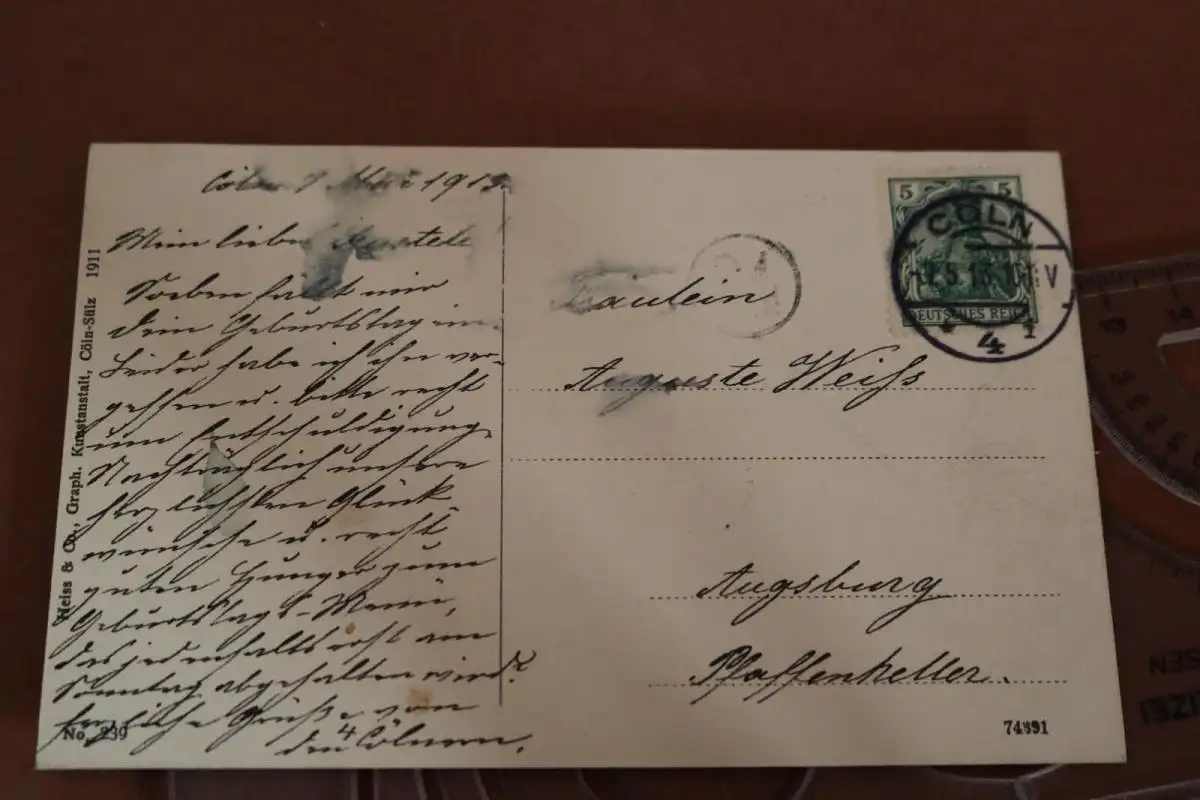 Cöln 7 Mai 1913
Mein liebes Gustele
Soeben fällt mir
Dein Geburtstag ein.
Leider habe ich ihn ver-
gessen u. bitte recht
um Entschuldigung.
Nachträglich unsere
herzlichsten Glück-
wünsche u. recht
guten Hunger zum
Geburtstags-Menü,
das jedenfalls erst am
Sonntag abgehalten wird?
herzliche Grüße von
den 4 Cölnern.
Heiss & Co., Graph. Kunstanstalt, Cöln-Sülz 1911
No. 239
5 5
DEUTSCHES REICH
CÖLN
5.13.
V
4 1
Fräulein
Auguste Weiss
Augsburg
Pfaffenkeller.
74891
13 14